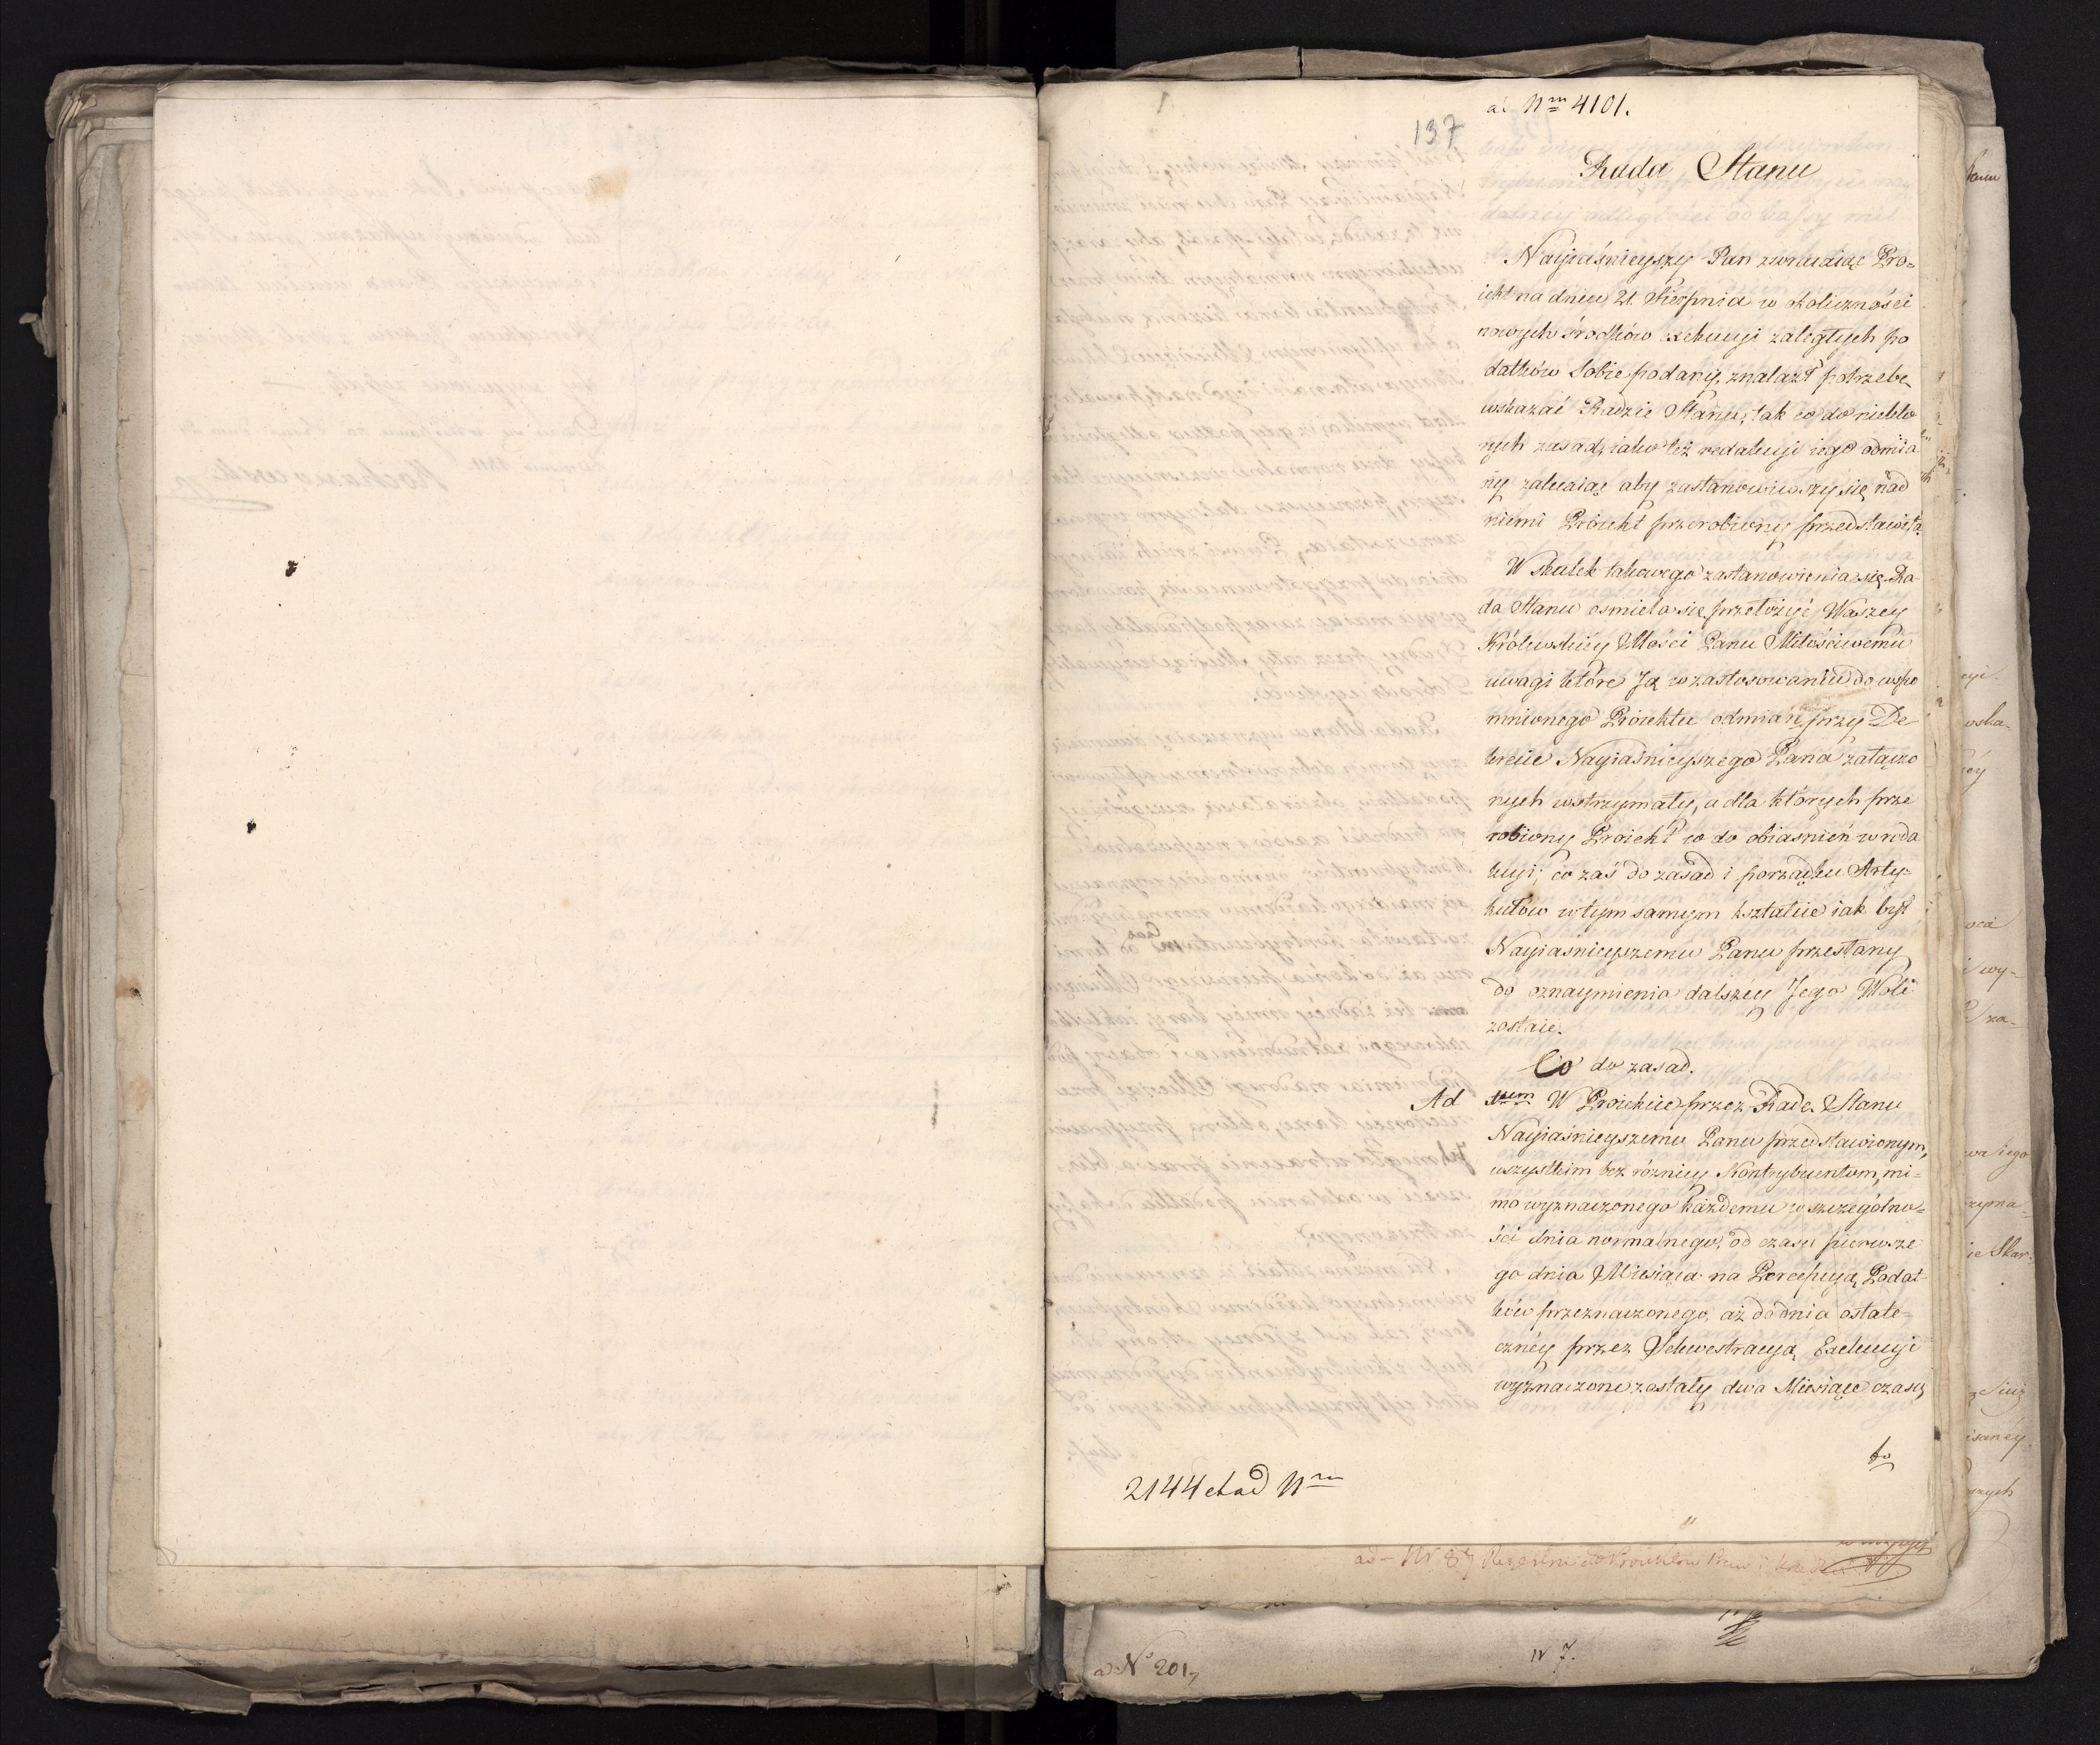 ad Nrm 4101.
137
Rada Stanu
Nayiaśnieyszy Pan zwracaiąc Pro=
iekt na dniu 21. Sierpnia w okoliczności
nowych środków exekucyi zaległych po
datków Sobie podany, znalazł potrzebę
wskazać Radzie Stanu, tak co do niektó
rych zasad, iako też redakcyi iego odmia
ny zalecaiąc aby zastanowiwszy się nad
niemi Proiekt przerobiony przedstawiła.
W skutek takowego zastanowienia się Ra
da Stanu ośmiela się przełożyć Waszey
Królewskiey Mości Panu Miłościwemu
uwagi które Ją w zastosowaniu do wspo
mnionego Proiektu odmian przy De
krecie Nayiaśnieyszego Pana załączo
nych wstrzymały, a dla których prze
robiony Proiekt co do obiaśnień w reda
kcyi; co zaś do zasad i porządku Arty=
kułów w tym samym kształcie iak był
Nayiaśnieyszemu Panu przesłany
do oznaymienia dalszey Jego Woli
zostaie.
Co do zasad.
Ad 1mum W Proiekcie przez Radę Stanu
Nayiaśnieyszemu Panu przedstawionym,
wszystkim bez różnicy Kontrybuentom, mi=
mo wyznaczonego każdemu w szczególno=
ści dnia normalnego, od czasu pierwsze
go dnia Miesiąca na Percepcyą Podat
ków przeznaczonego, aż do dnia ostate=
czney przez Sekwestracyą Exekucyi
wyznaczone zostały dwa Miesiące czasu
to
2144 et ad Nrm
ad Nr 87
a N° 201,
N 7.